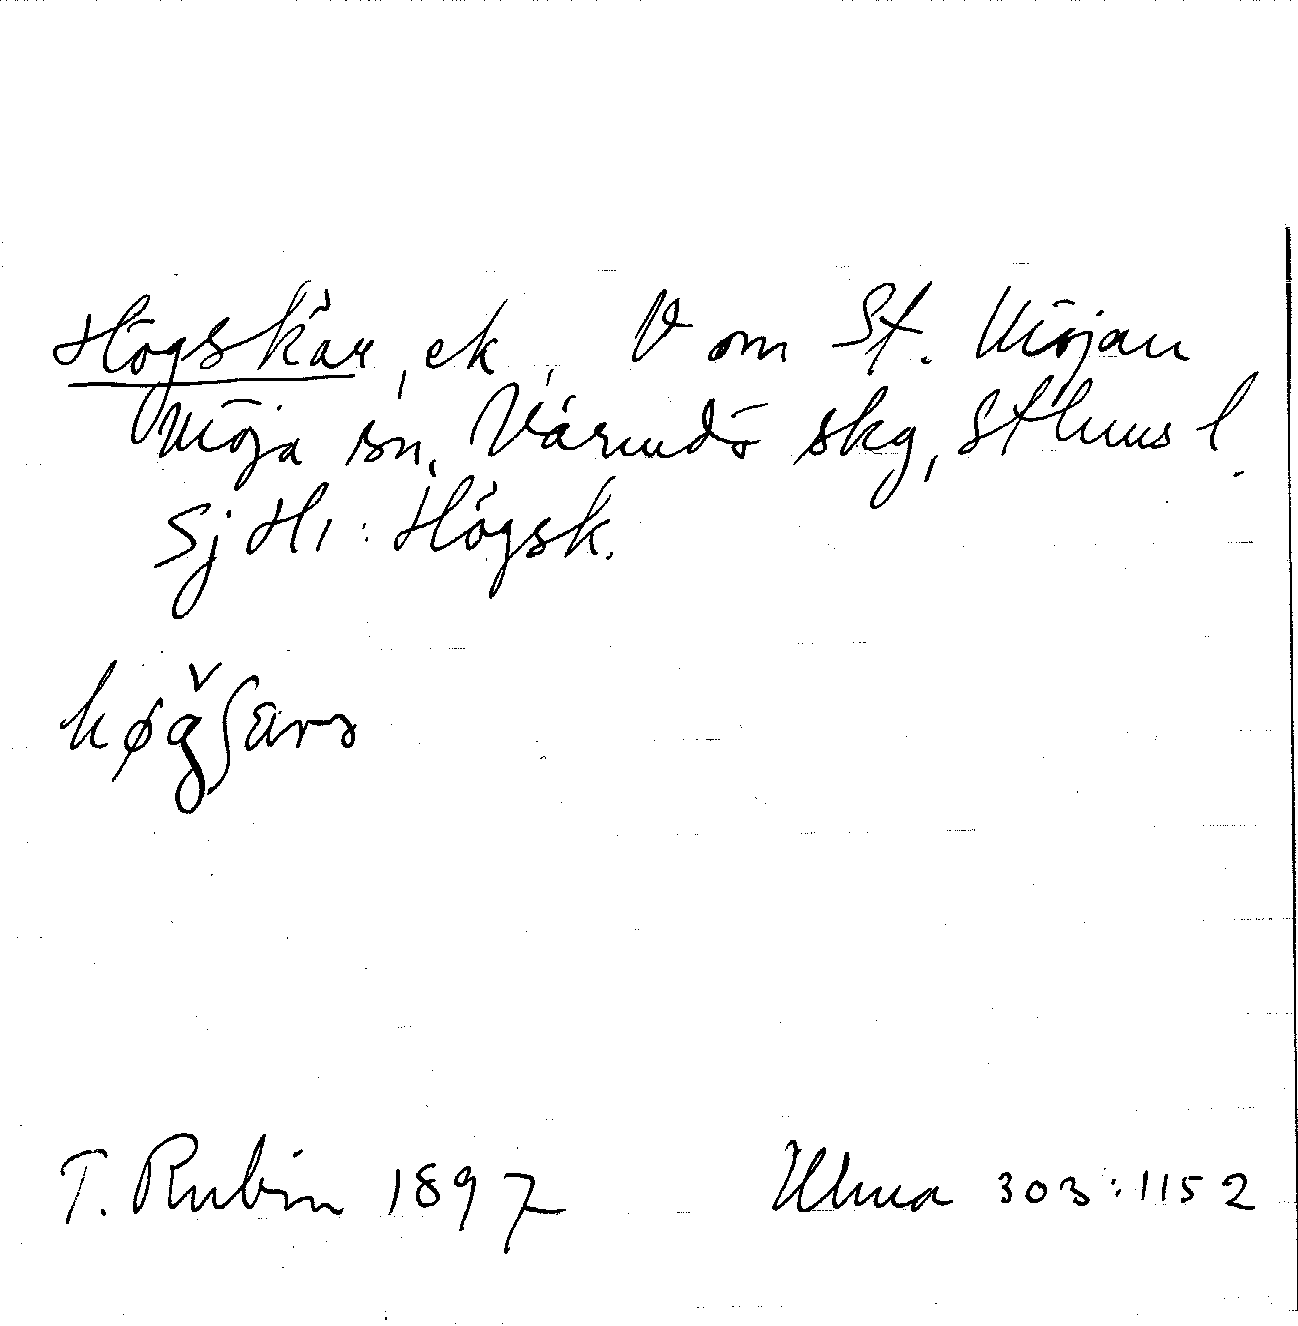 Högskär, ek, V om St. Möjan
Möja sn, Värmdö skg, Sthlms l.
Sj H1: Högsk.
T. Rubin 1897 Ulma 303:1152